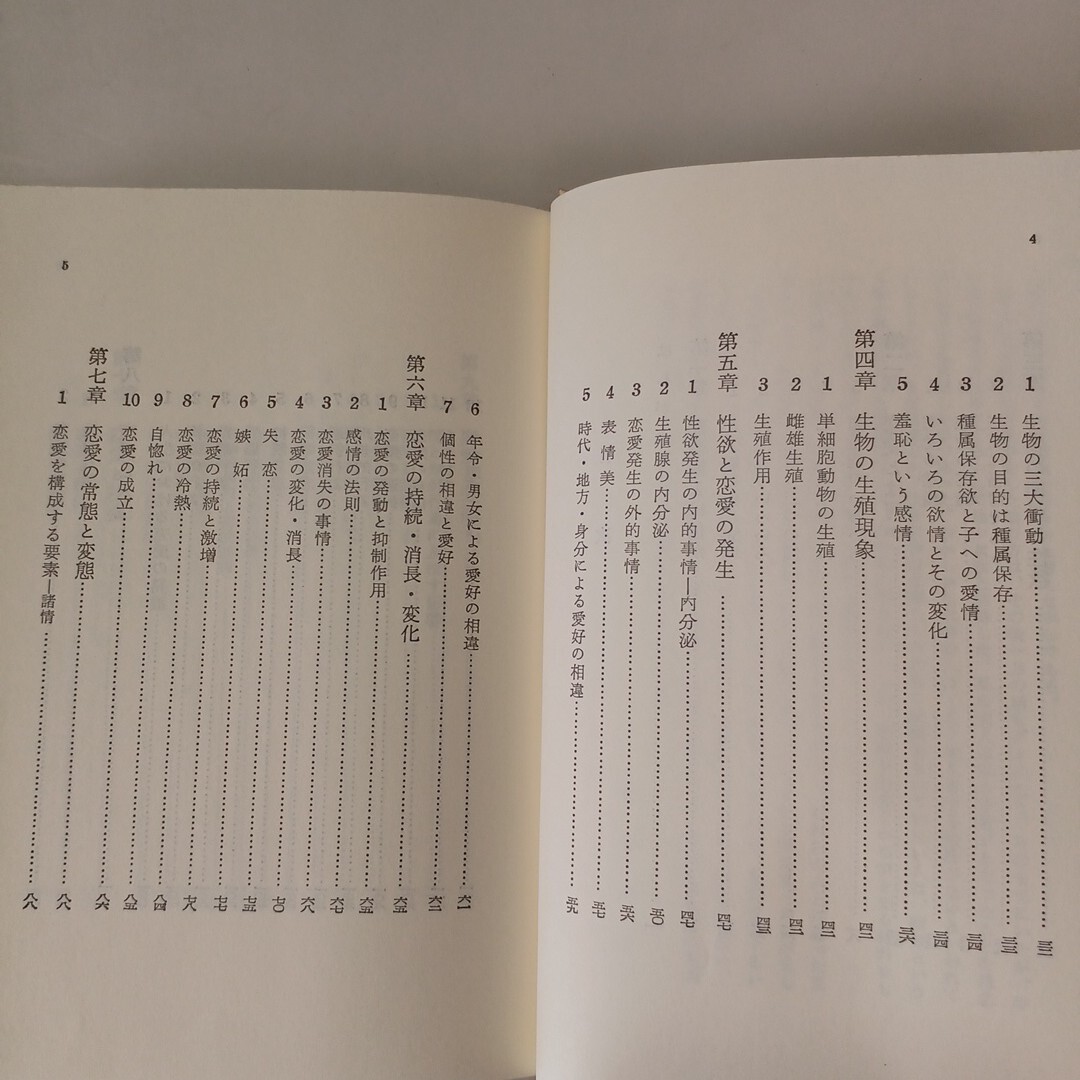 4
1 生物の三大衝動……三二
2 生物の目的は種属保存……三三
3 種属保存欲と子への愛情……三四
4 いろいろの欲情とその変化……三四
5 羞恥という感情……三六
第四章 生物の生殖現象……四二
1 単細胞動物の生殖……四二
2 雌雄生殖……四二
3 生殖作用……四三
第五章 性欲と恋愛の発生……四七
1 性欲発生の内的事情―内分泌……四七
2 生殖腺の内分泌……五〇
3 恋愛発生の外的事情……五六
4 表情美……五七
5 時代・地方・身分による愛好の相違……五九
5
6 年令・男女による愛好の相違……六一
7 個性の相違と愛好……六二
第六章 恋愛の持続・消長・変化……六五
1 恋愛の発動と抑制作用……六五
2 感情の法則……六七
3 恋愛消失の事情……六八
4 恋愛の変化・消長……七〇
5 失恋……七五
6 嫉妬……七七
7 恋愛の持続と激増……七八
8 恋愛の冷熱……八四
9 自惚れ……八五
10 恋愛の成立……八六
第七章 恋愛の常態と変態……八八
1 恋愛を構成する要素―諸情……八八